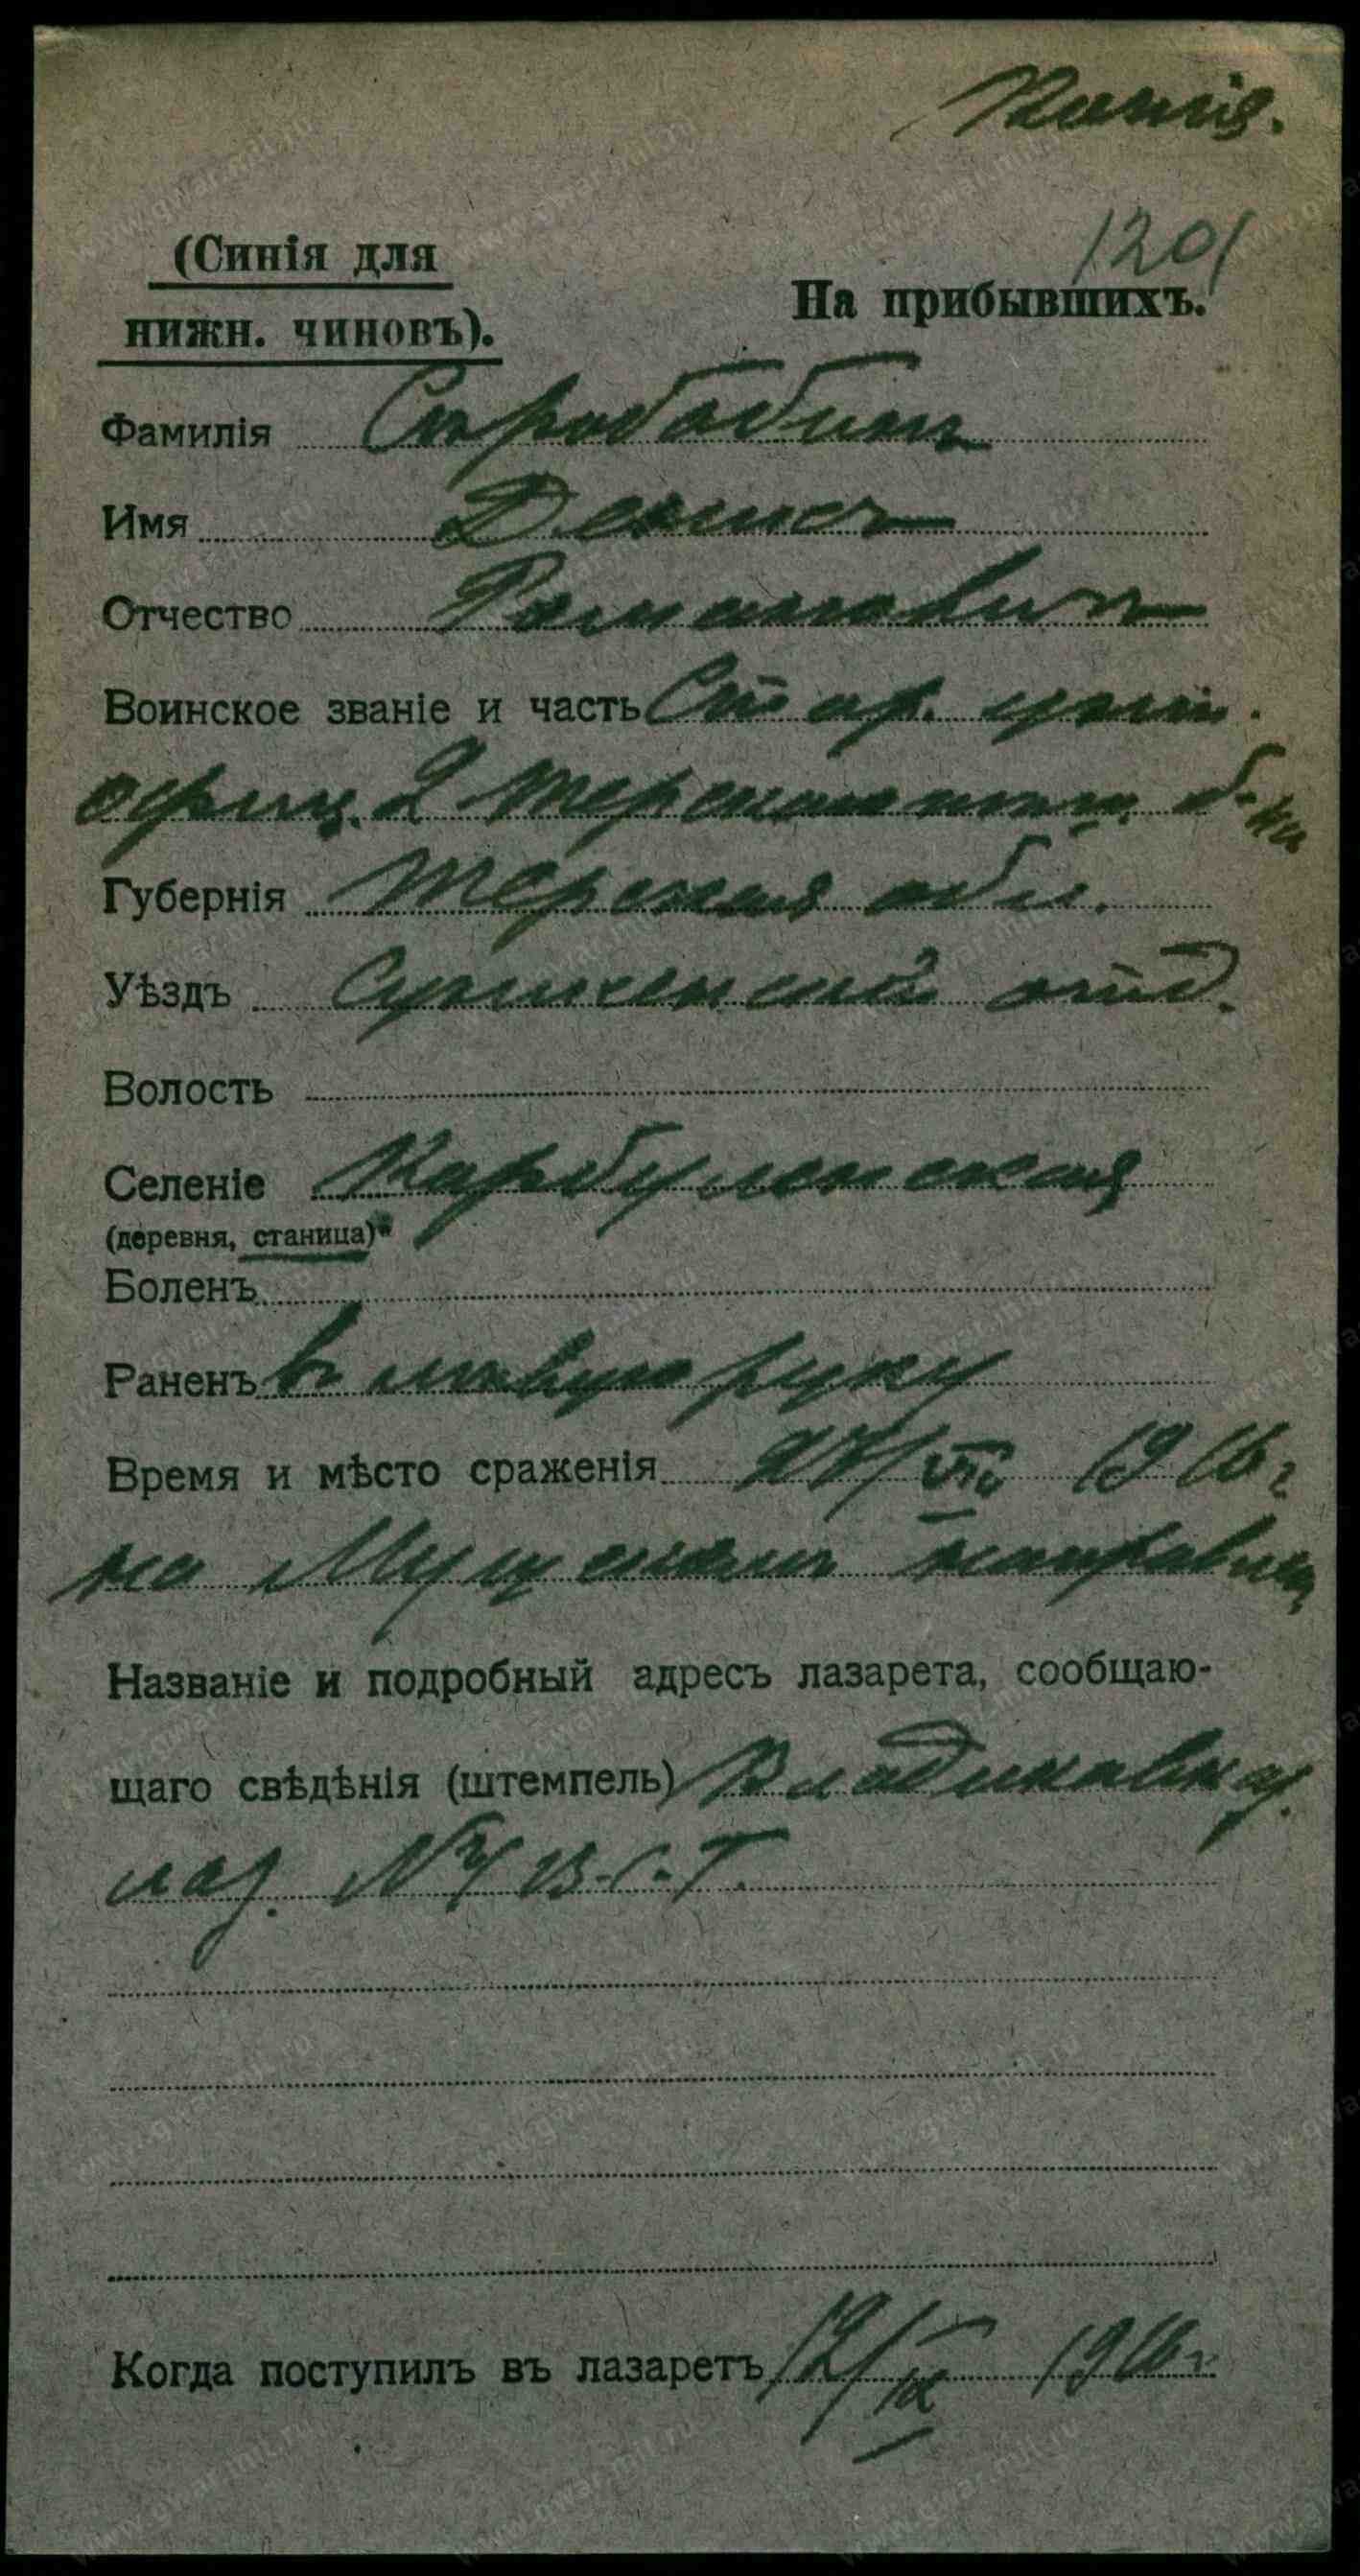 Копія.
1201
(Синія для
нижн. чиновъ).
На прибывшихъ.
Фамилія
Имя Денисъ
Отчество Романовичъ
Воинское званіе и часть Стар. унт.
офиц. 2 Терская б-ии
Губернія Терская обл.
Уѣздъ Сунженскій отд.
Волость
Селеніе Карабулакская
(деревня, станица)
Боленъ
Раненъ въ лѣвую руку
Время и мѣсто сраженія 27/VII 1916 г
на Мушскомъ направлен.
Названіе и подробный адресъ лазарета, сообщаю-
щаго свѣдѣнія (штемпель) Владикавказ.
лаз. № 4 В.С.Г.
Когда поступилъ въ лазаретъ 12/IX 1916 г.